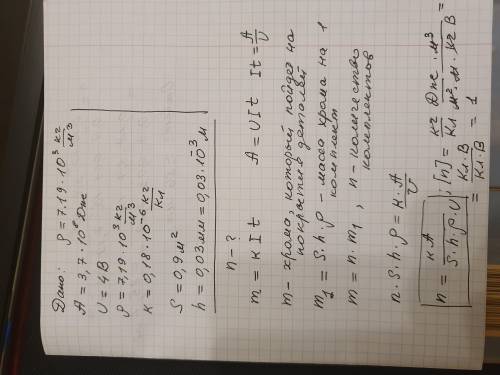 Дано: ρ = 7.19 · 10³ кг/м³
A = 3,7 · 10⁸ Дж
U = 4 В
ρ = 7,19 · 10³ кг/м³
к = 0,18 · 10⁻⁶ кг/Кл
S = 0,9 м²
h = 0,03 мм = 0,03 · 10⁻³ м
n - ?
m = к I t A = U I t I t = A/U
m - хрома, который пойдет на
покрытие деталей
m₁ = S · h · ρ - масса хрома на 1
комплект
m = n · m₁ , n - количество
комплектов
n · S · h · ρ = к · A/U
n = к · A / S · h · ρ · U ; [n] = кг/Кл · Дж · м³ / м² · м · кг · В =
= Кл · В / Кл · В = 1